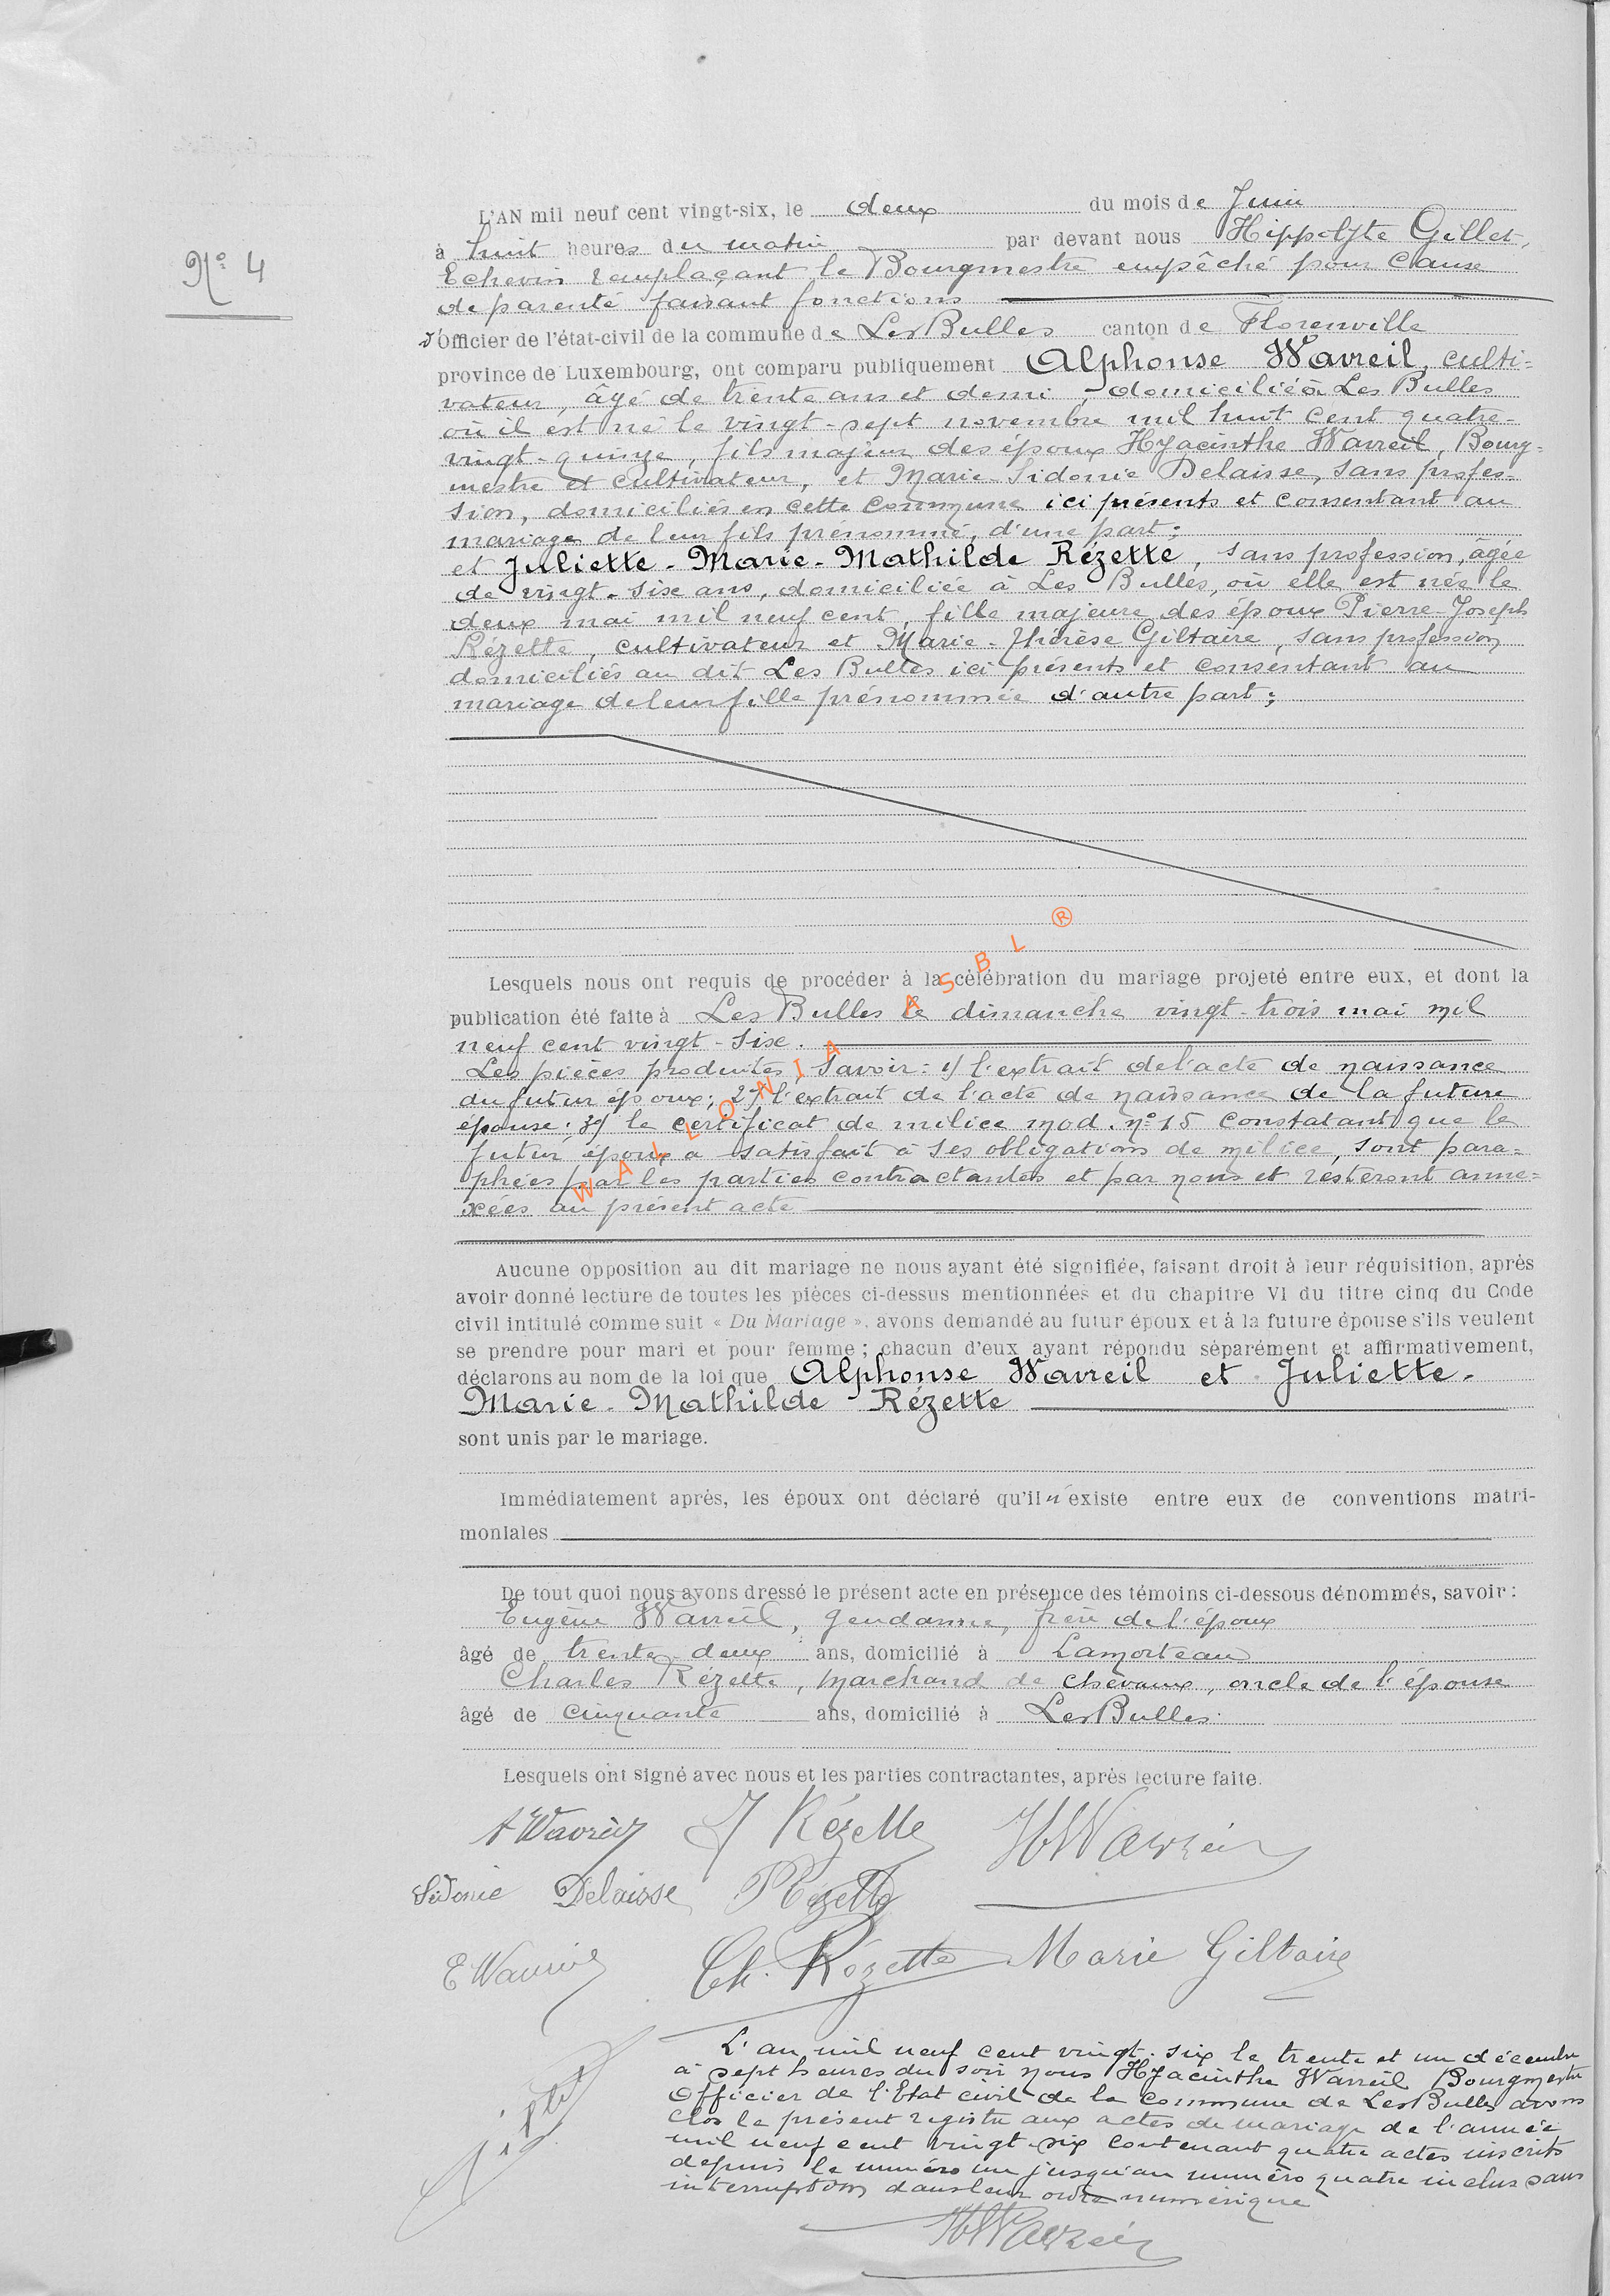 N° 4
L'AN mil neuf cent vingt-six, le deux du mois de Juin
à huit heures du matin par devant nous Hippolyte Gillet,
Echevin remplaçant le Bourgmestre empêché pour cause
de parenté faisant fonctions
d'Officier de l'état-civil de la commune de Les Bulles canton de Florenville
province de Luxembourg, ont comparu publiquement Alphonse Wavreil, culti=
vateur, âgé de trente ans et demi, domicilié à Les Bulles
où il est né le vingt-sept novembre mil huit cent quatre-
vingt-quinze, fils majeur des époux Hyacinthe Wavreil, Bourg=
mestre et cultivateur, et Marie-Sidonie Delaisse, sans profes=
sion, domiciliés en cette commune ici présents et consentant au
mariage de leur fils prénommé, d'une part;
et Juliette-Marie-Mathilde Rézette, sans profession, âgée
de vingt-six ans, domiciliée à Les Bulles, où elle est née le
deux mai mil neuf cent, fille majeure des époux Pierre-Joseph
Rézette, cultivateur et Marie-Thérèse Giltaire, sans profession
domiciliés au dit Les Bulles ici présents et consentant au
mariage de leur fille prénommée d'autre part;
Lesquels nous ont requis de procéder à la célébration du mariage projeté entre eux, et dont la
publication été faite à Les Bulles le dimanche vingt-trois mai mil
neuf cent vingt-six.
Les pièces produites, savoir: 1) l'extrait de l'acte de naissance
du futur époux; 2) l'extrait de l'acte de naissance de la future
épouse; 3) le certificat de milice mod. n° 15 constatant que le
futur époux a satisfait à ses obligations de milice, sont para=
phées par les parties contractantes et par nous et resteront anne=
xées au présent acte
WALLONIA ASBL ®
Aucune opposition au dit mariage ne nous ayant été signifiée, faisant droit à leur réquisition, après
avoir donné lecture de toutes les pièces ci-dessus mentionnées et du chapitre VI du titre cinq du Code
civil intitulé comme suit « Du Mariage », avons demandé au futur époux et à la future épouse s'ils veulent
se prendre pour mari et pour femme ; chacun d'eux ayant répondu séparément et affirmativement,
déclarons au nom de la loi que Alphonse Wavreil et Juliette-
Marie-Mathilde Rézette
sont unis par le mariage.
Immédiatement après, les époux ont déclaré qu'il n'existe entre eux de conventions matri-
moniales
De tout quoi nous avons dressé le présent acte en présence des témoins ci-dessous dénommés, savoir :
Eugène Wavreil, gendarme, frère de l'époux
âgé de trente-deux ans, domicilié à Lamorteau
Charles Rézette, marchand de chevaux, oncle de l'épouse
âgé de cinquante ans, domicilié à Les Bulles.
Lesquels ont signé avec nous et les parties contractantes, après lecture faite.
A Wavreil J Rézette H Wavreil
Sidonie Delaisse P Rezette
E Wavreil Ch. Rézette Marie Giltaire
L'an mil neuf cent vingt-six le trente et un décembre
à sept heures du soir nous Hyacinthe Wavreil Bourgmestre
Officier de l'Etat civil de la Commune de Les Bulles avons
clos le présent registre aux actes de mariage de l'année
mil neuf cent vingt-six contenant quatre actes inscrits
depuis le numéro un jusqu'au numéro quatre inclus sans
interruption dans leur ordre numérique
H Wavreil